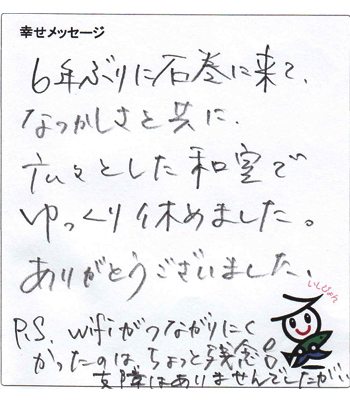 幸せメッセージ
6年ぶりに石巻に来て、
なつかしさと共に、
広々とした和室で
ゆっくり休めました。
ありがとうございました、
いしぴょん
P.S. wifiがつながりにく
かったのはちょっと残念
支障はありませんでしたが…